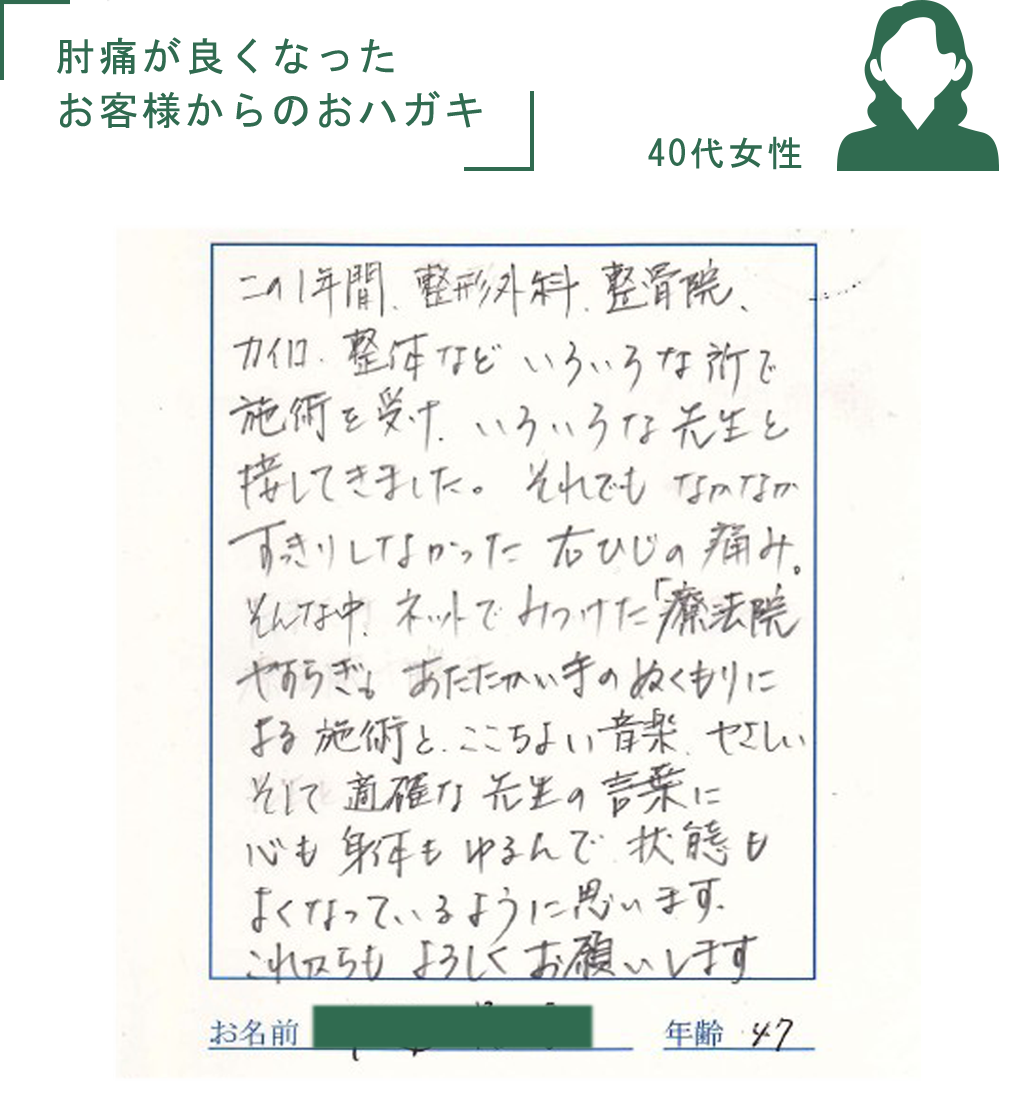 肘痛が良くなった
お客様からのおハガキ
40代女性
この1年間、整形外科、整骨院、
カイロ、整体など いろいろな所で
施術を受け、いろいろな先生と
接してきました。それでも なかなか
すっきりしなかった 右ひじの痛み。
そんな中、ネットで みつけた「療法院
やすらぎ」。あたたかい手の ぬくもりに
よる 施術と、ここちよい 音楽、やさしい
そして 適確な 先生の 言葉に
心も 身体も ゆるんで 状態も
よくなっているように思います。
これからも よろしく お願いします
お名前
年齢 47